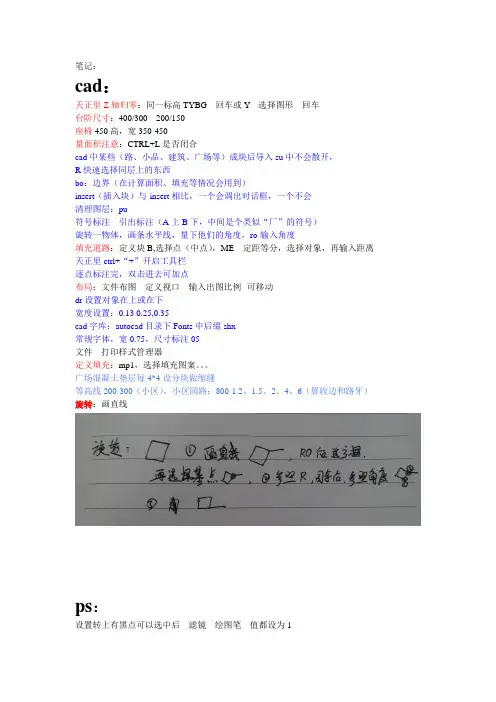 笔记：
cad：
天正里 Z 轴归零：同一标高 TYBG 回车或 Y 选择图形 回车
台阶尺寸：400/300 200/150
座椅 450 高，宽 350-450
量面积注意：CTRL+L 是否闭合
cad 中某些（路、小品、建筑、广场等）成块后导入 su 中不会散开，
R 快速选择同层上的东西
bo：边界（在计算面积、填充等情况会用到）
insert（插入块）与-insert 相比，一个会调出对话框，一个不会
清理图层：pu
符号标注 引出标注（A 上 B 下，中间是个类似“厂”的符号）
旋转一物体，画条水平线，量下他们的角度，ro 输入角度
填充道路：定义块 B,选择点（中点），ME 定距等分，选择对象，再输入距离
天正里 ctrl+“+”开启工具栏
逐点标注完，双击进去可加点
布局：文件布图 定义视口 输入出图比例 可移动
dr 设置对象在上或在下
宽度设置：0.13 0.25,0.35
cad 字库：autocad 目录下 Fonts 中后缀 shx
常规字体，宽 0.75，尺寸标注 05
文件 打印样式管理器
定义填充：mp1，选择填充图案。。。
广场混凝土垫层每 4*4 设分块做缩缝
等高线 200-300（小区），小区园路：800-1.2、1.5、2、4、6（算收边和路牙）
旋转：画直线
旋转： ① 画直线 ，RO后选了它，
再选择基点 ，② 参照R，回车后，参照角度
③
ps：
设置转上有黑点可以选中后 滤镜 绘图笔 值都设为 1